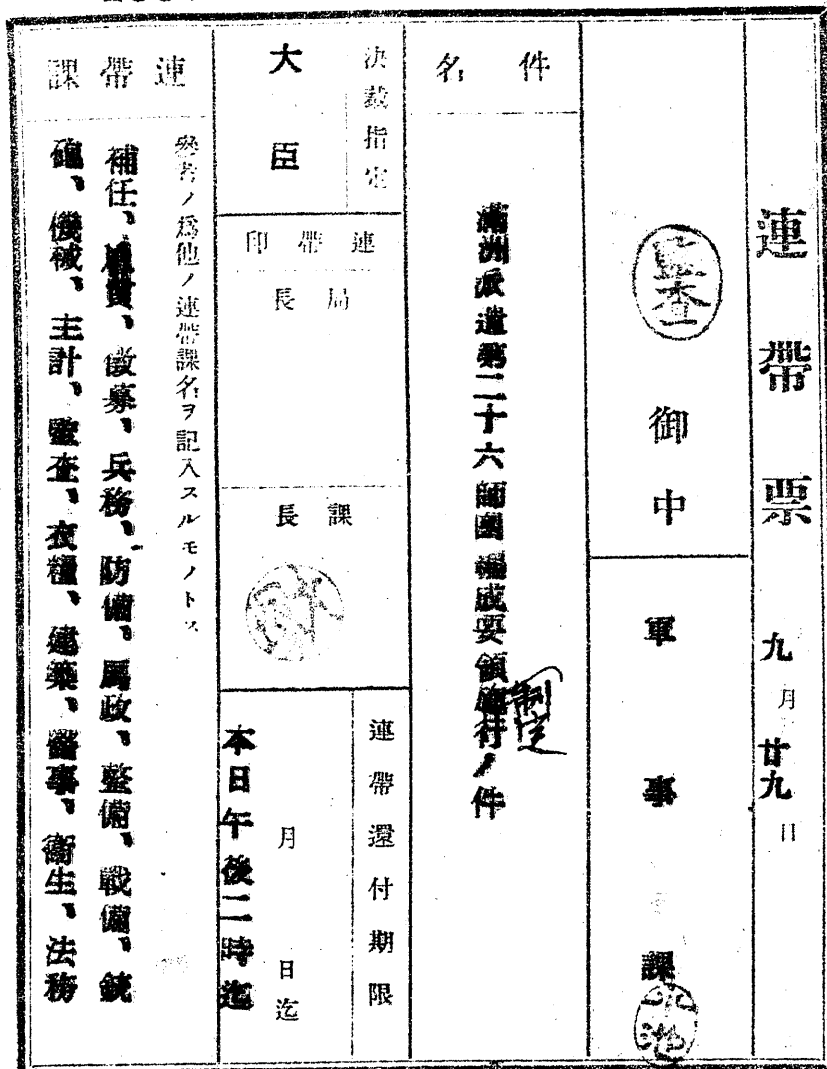 連帶票 九月廿九日
監査 御中
軍事課
件名
滿洲派遣第二十六師團編成要領施行ノ件
制定
決裁指定
大臣
連帶印
局長
課長
連帶還付期限
月 日迄
本日午後二時迄
連帶課
參考ノ爲他ノ連帶課名ヲ記入スルモノトス
補任、徵募、兵務、防備、馬政、整備、戰備、銃
砲、機械、主計、監査、衣糧、建築、醫事、衞生、法務